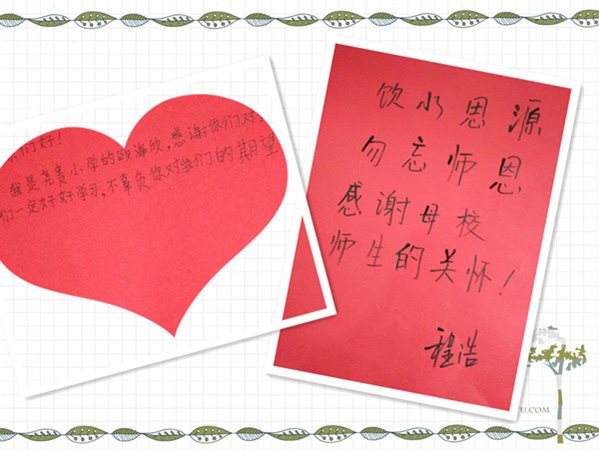 们好!
我是尧赛小学的欧海欣,感谢你们对
们一定好好学习,不辜负你对我们的期望
饮水思源
勿忘师恩
感谢母校
师生的关怀!
程浩
U.COM